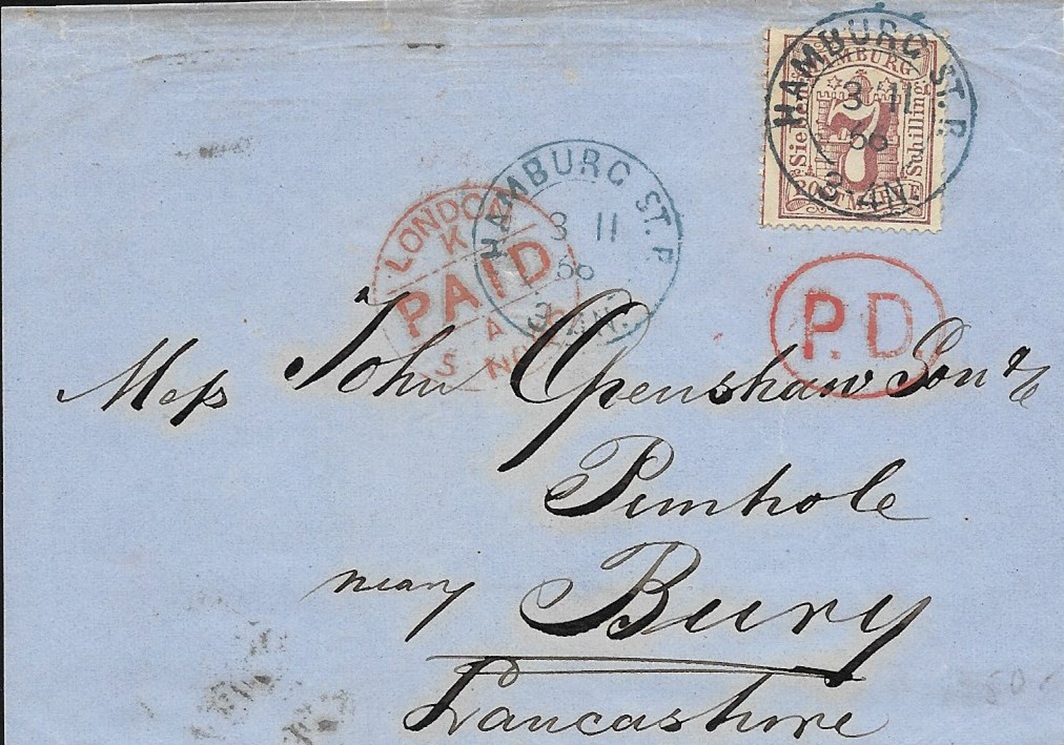 HAMBURG ST. P.
3 11
66
3-4 N.
HAMBURG
Sieben
7
Schilling
POSTMARKE
HAMBURG ST. P.
3 11
66
3-4 N.
LONDON
K
PAID
A
5 NO
P.D
Mess John Openshaw Son & Co
Pimhole
near
Bury
Lancashire
50